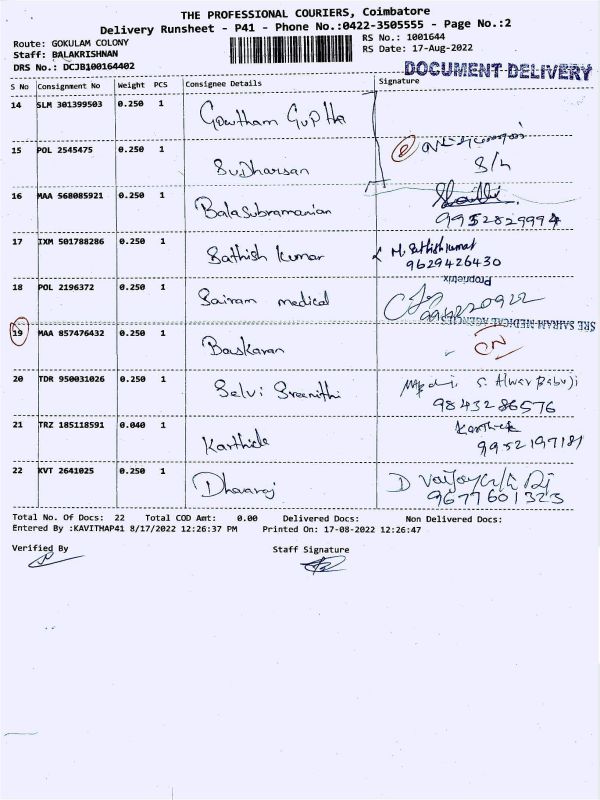 THE PROFESSIONAL COURIERS, Coimbatore
Delivery Runsheet - P41 - Phone No.:0422-3505555 - Page No.:2
Route: GOKULAM COLONY
Staff: BALAKRISHNAN
DRS No.: DCJB100164402
RS No.: 1001644
RS Date: 17-Aug-2022
DOCUMENT DELIVERY
S No Consignment No Weight PCS Consignee Details Signature
14 SLM 301399503 0.250 1 Gowtham Gupta
15 POL 2545475 0.250 1 Sudharsan S/h
16 MAA 568085921 0.250 1 Balasubramanian
9952829994
17 IXM 501788286 0.250 1 Sathish Kumar M. Sathish kumar
9629426430
18 POL 2196372 0.250 1 Sairam medical
Proprietrix
SRE SAIRAM MEDICAL AGENCIES
19 MAA 857476432 0.250 1 Baskaran CN
20 TDR 950031026 0.250 1 Selvi Sreenithi S. Alwar Babuji
9843286576
21 TRZ 185118591 0.040 1 Karthick Karthick
9952197181
22 KVT 2641025 0.250 1 Dhanraj D
9677601323
Total No. Of Docs: 22 Total COD Amt: 0.00 Delivered Docs: Non Delivered Docs:
Entered By :KAVITHAP41 8/17/2022 12:26:37 PM Printed On: 17-08-2022 12:26:47
Verified By Staff Signature